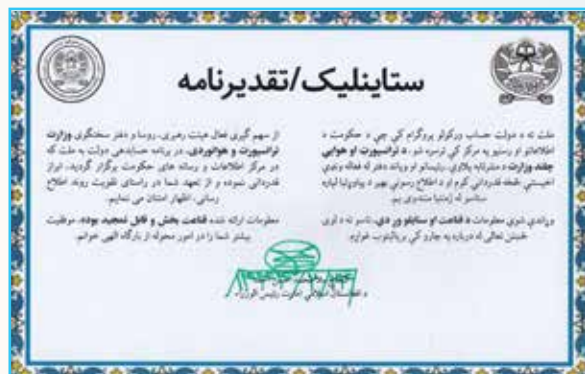 ستاینلیک/تقدیرنامه
ملت ته د دولت حساب ورکولو پروګرام کې چې د حکومت د
اطلاعاتو او رسنیو په مرکز کې ترسره شو، د ترانسپورت او هوایي
چلند وزارت د مشرتابه پلاوي، رئیسانو او ویاند دفتر له فعاله ونډې
اخیستې څخه قدرداني کوم او د اطلاع رسونې بهیر د پیاوړتیا لپاره
ستاسو له ژمنتیا مننه وی یم.
وړاندې شوي معلومات د قناعت او ستاینلو وړ دي، تاسو ته د لوی
څښتن تعالی له درباره په چارو کې بریالیتوب غواړم.
از سهم گیری فعال هیئت رهبری، روسا و دفتر سخنگوی وزارت
ترانسپورت و هوانوردی، در برنامه حسابدهی دولت به ملت که
در مرکز اطلاعات و رسانه های حکومت برگزار گردید، ابراز
قدردانی نموده و از تعهد شما در راستای تقویت روند اطلاع
رسانی، اظهار امتنان می نمایم.
معلومات ارائه شده قناعت بخش و قابل تمجید بوده، موفقیت
بیشتر شما را در امور محوله از بارگاه الهی خواهانم.
د افغانستان اسلامي امارت رئیس الوزراء